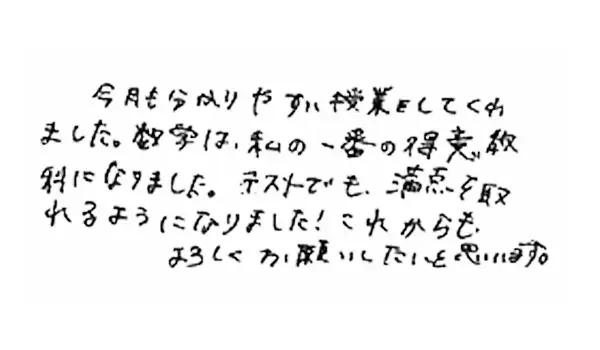 今月も分かりやすい授業をしてくれ
ました。数学は、私の一番の得意教
科になりました。テストでも、満点を取
れるようになりました！これからも、
よろしくお願いしたいと思います。